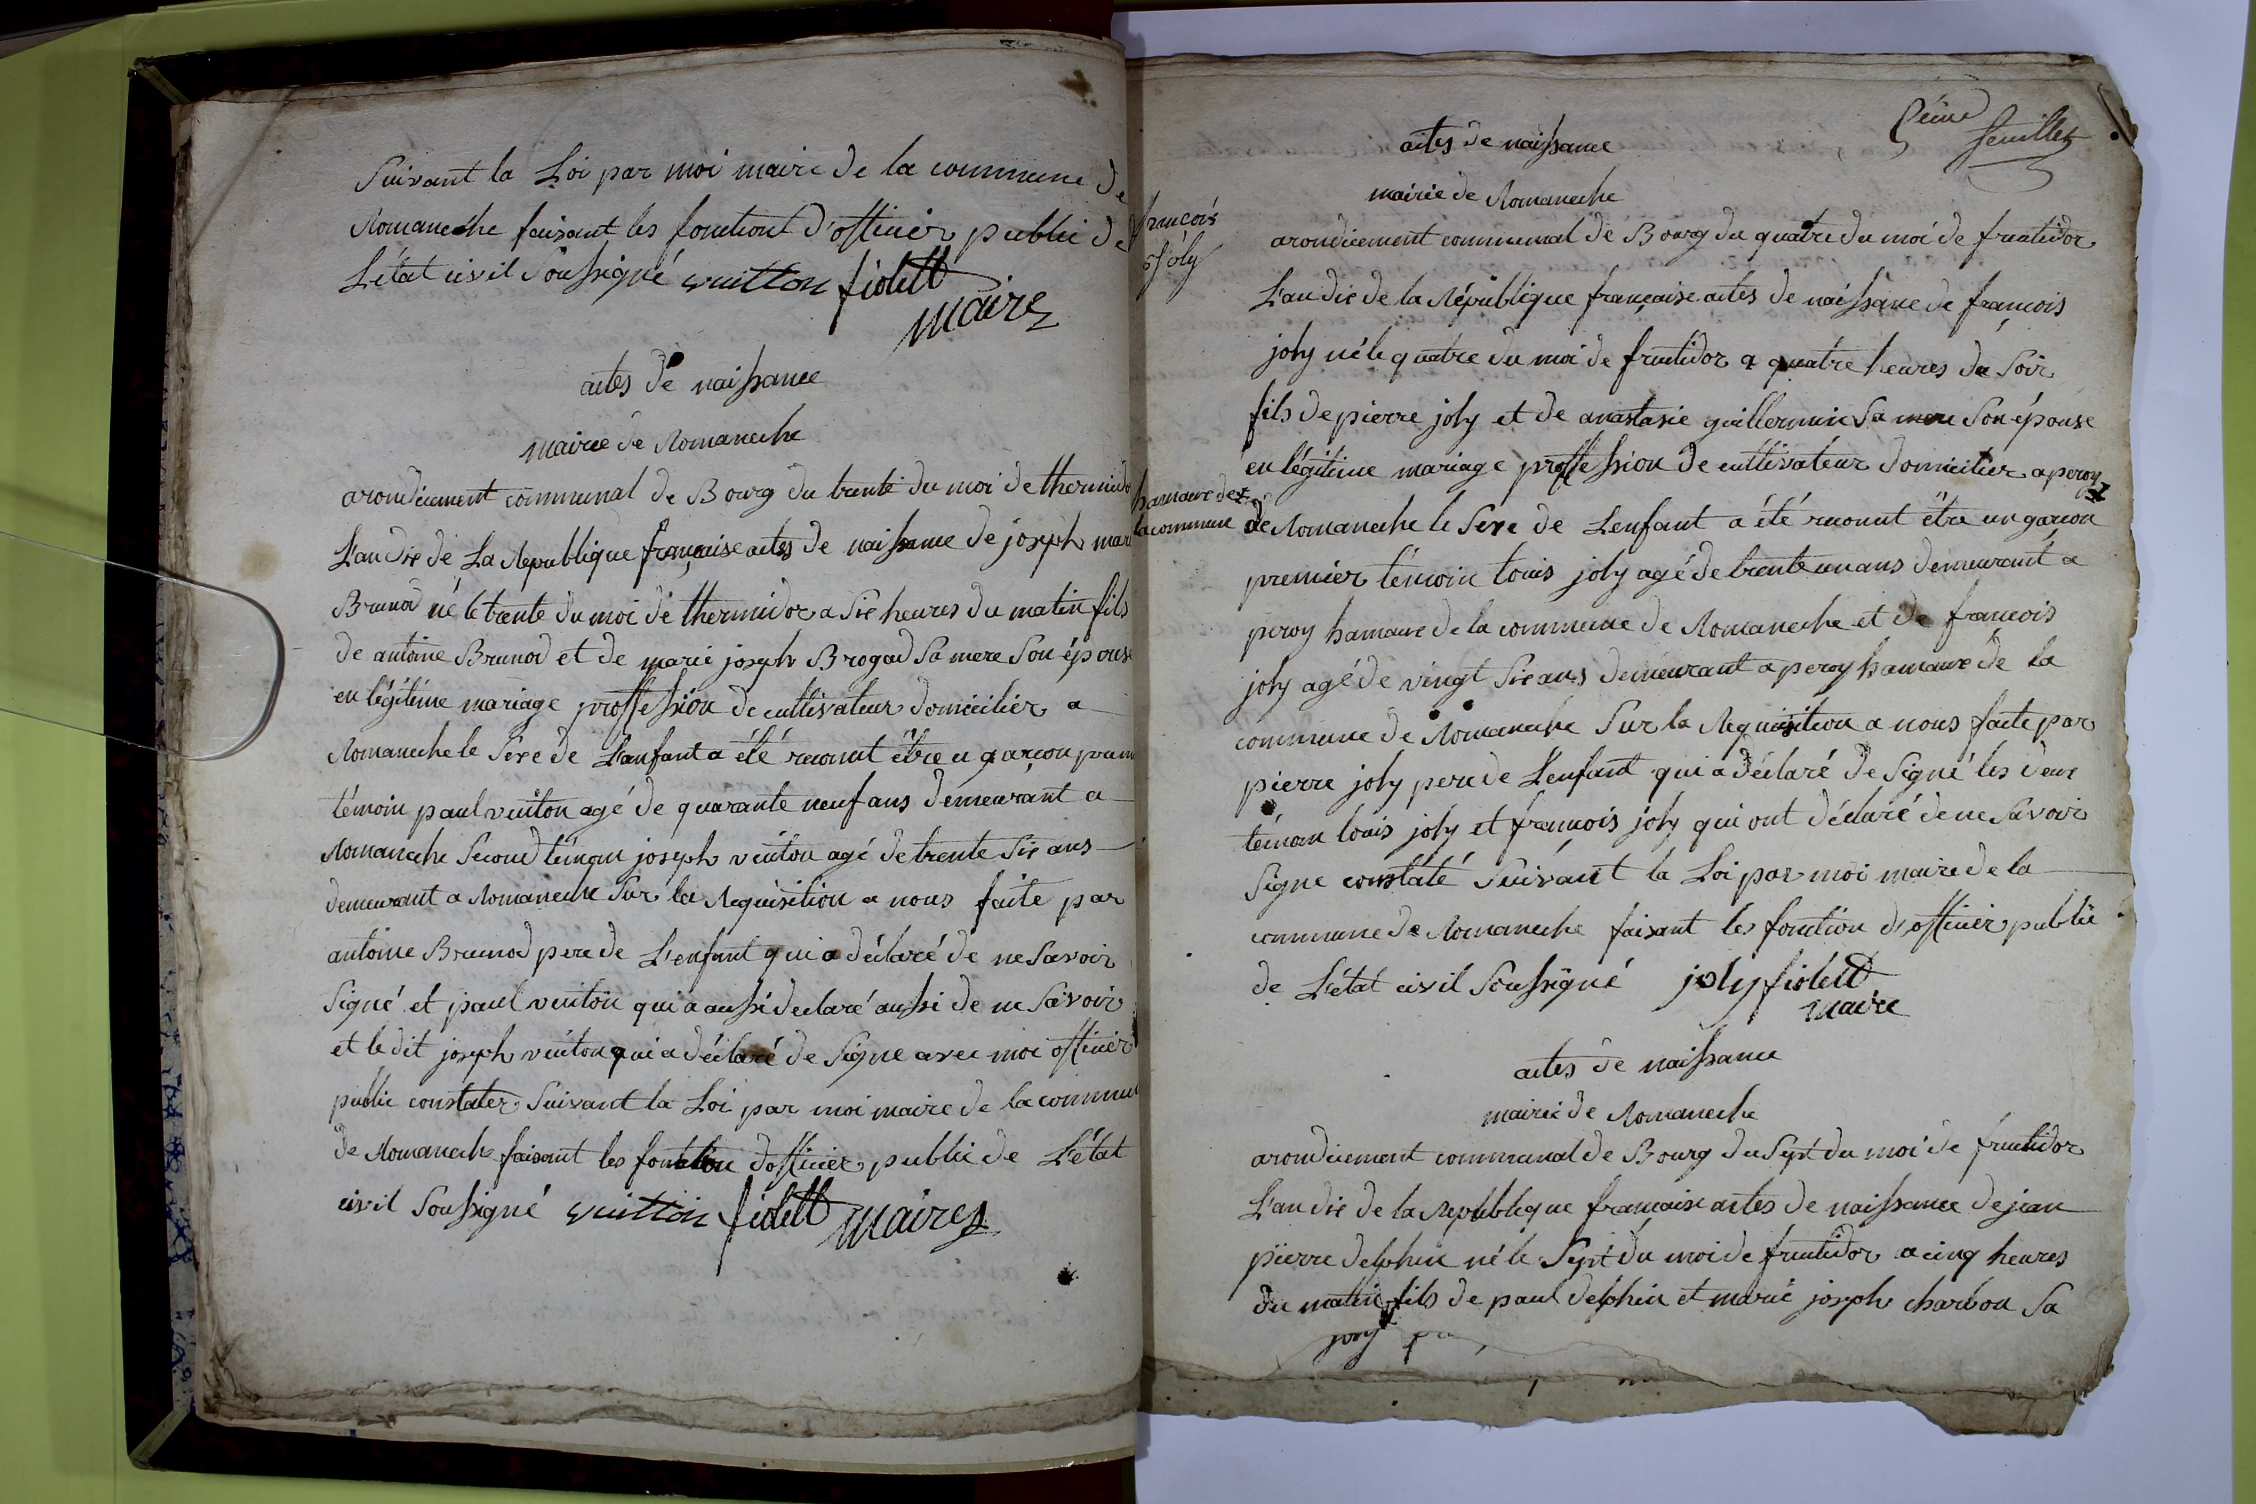 Suivant la Loi par moi maire de la commune de
Romaneche faisant les fonctiont d'officier public de
L'état civil Soussigné vuitton fidelt
maire
actes de naissance
mairie de Romaneche
arondicement communal de Bourg du trente du moi de thermido
L'an dix de La Republique française actes de naissance de joseph mar
Brunod né le trente du moi de thermidor a Six heures du matin fils
de antoine Brunod et de marie joseph Brogad Sa mere Son épouse
en légitime mariage proffession de cultivateur domicilier a
Romaneche le Sexe de L'anfant a été reconut être u garcon prem
témoin paul vuiton agé de quarante neuf ans demeurant a
Romaneche Second témoin joseph vuiton agé de trente Six ans
demeurant a Romaneche Sur la Requisition a nous faite par
antoine Brunod pere de L'enfant qui a déclaré de ne Savoir
Signé et paul vuiton qui a aussi declaré aussi de ne Savoir
et le dit joseph vuiton qui a déclaré de Signe avec moi officier
public constater Suivant la Loi par moi maire de la commun
de Romaneche faisant les fonction d'officier public de L'état
civil Soussigné vuitton fidelt maire
feuillet
actes de naissance
mairie de Romaneche
francois
joly
arondicement communal de Bourg du quatre du moi de fructidor
L'an dix de la République française actes de naissance de françois
joly né le quatre du moi de fructidor a quatre heures du Soir
fils de pierre joly et de anastasie guillermin Sa mere Son épouse
en légitime mariage proffession de cultivateur domicilier a peroy
hamaux de
la commune de Romaneche le Sexe de L'enfant a été reconut être un garcon
premier témoin louis joly agé de trente un ans demeurant a
peroy hamaux de la commune de Romaneche et de francois
joly agé de vingt Six ans demeurant a peroy hamaux de la
commune de Romaneche Sur la Requisition a nous faite par
pierre joly pere de L'enfant qui a déclaré de Signé les deux
témoin louis joly et francois joly qui ont déclaré de ne Savoir
Signe constaté Suivant la Loi par moi maire de la
commune de Romaneche faisant les fonction d'officier public
de L'état civil Soussigné joly fidelt
maire
actes de naissance
mairie de Romaneche
arondicement communal de Bourg du Sept du moi de fructidor
L'an dix de la Republique francaise actes de naissance de jean
pierre delphin né le Sept du moi de fructidor a cinq heures
du matin fils de paul delphin et marie joseph charbon Sa